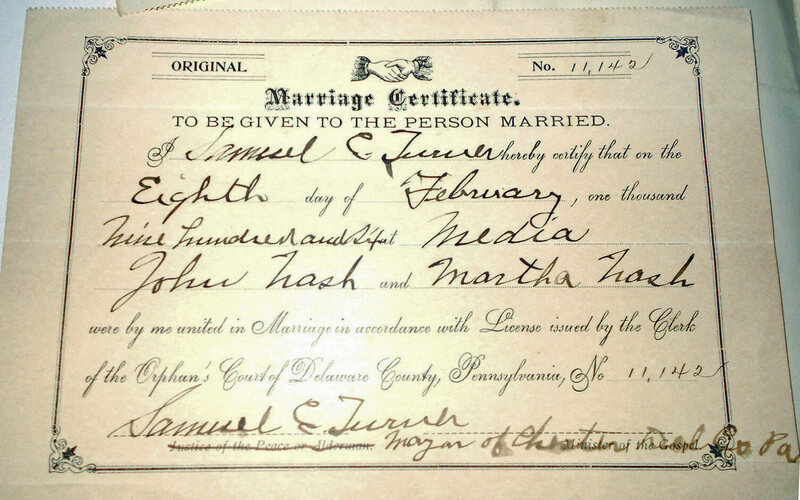 ORIGINAL No. 11,142
Marriage Certificate.
TO BE GIVEN TO THE PERSON MARRIED.
I Samuel E. Turner hereby certify that on the
Eighth day of February, one thousand
nine hundred and Six at Media
John Nash and Martha Nash
were by me united in Marriage in accordance with License issued by the Clerk
of the Orphan's Court of Delaware County, Pennsylvania, No 11,142
Samuel E. Turner
Justice of the Peace or Alderman. Mayor of Chester Del Co Pa Minister of the Gospel